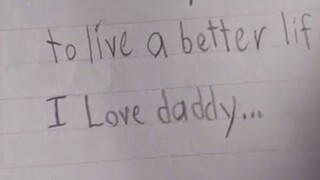 to live a better lif
I Love daddy...